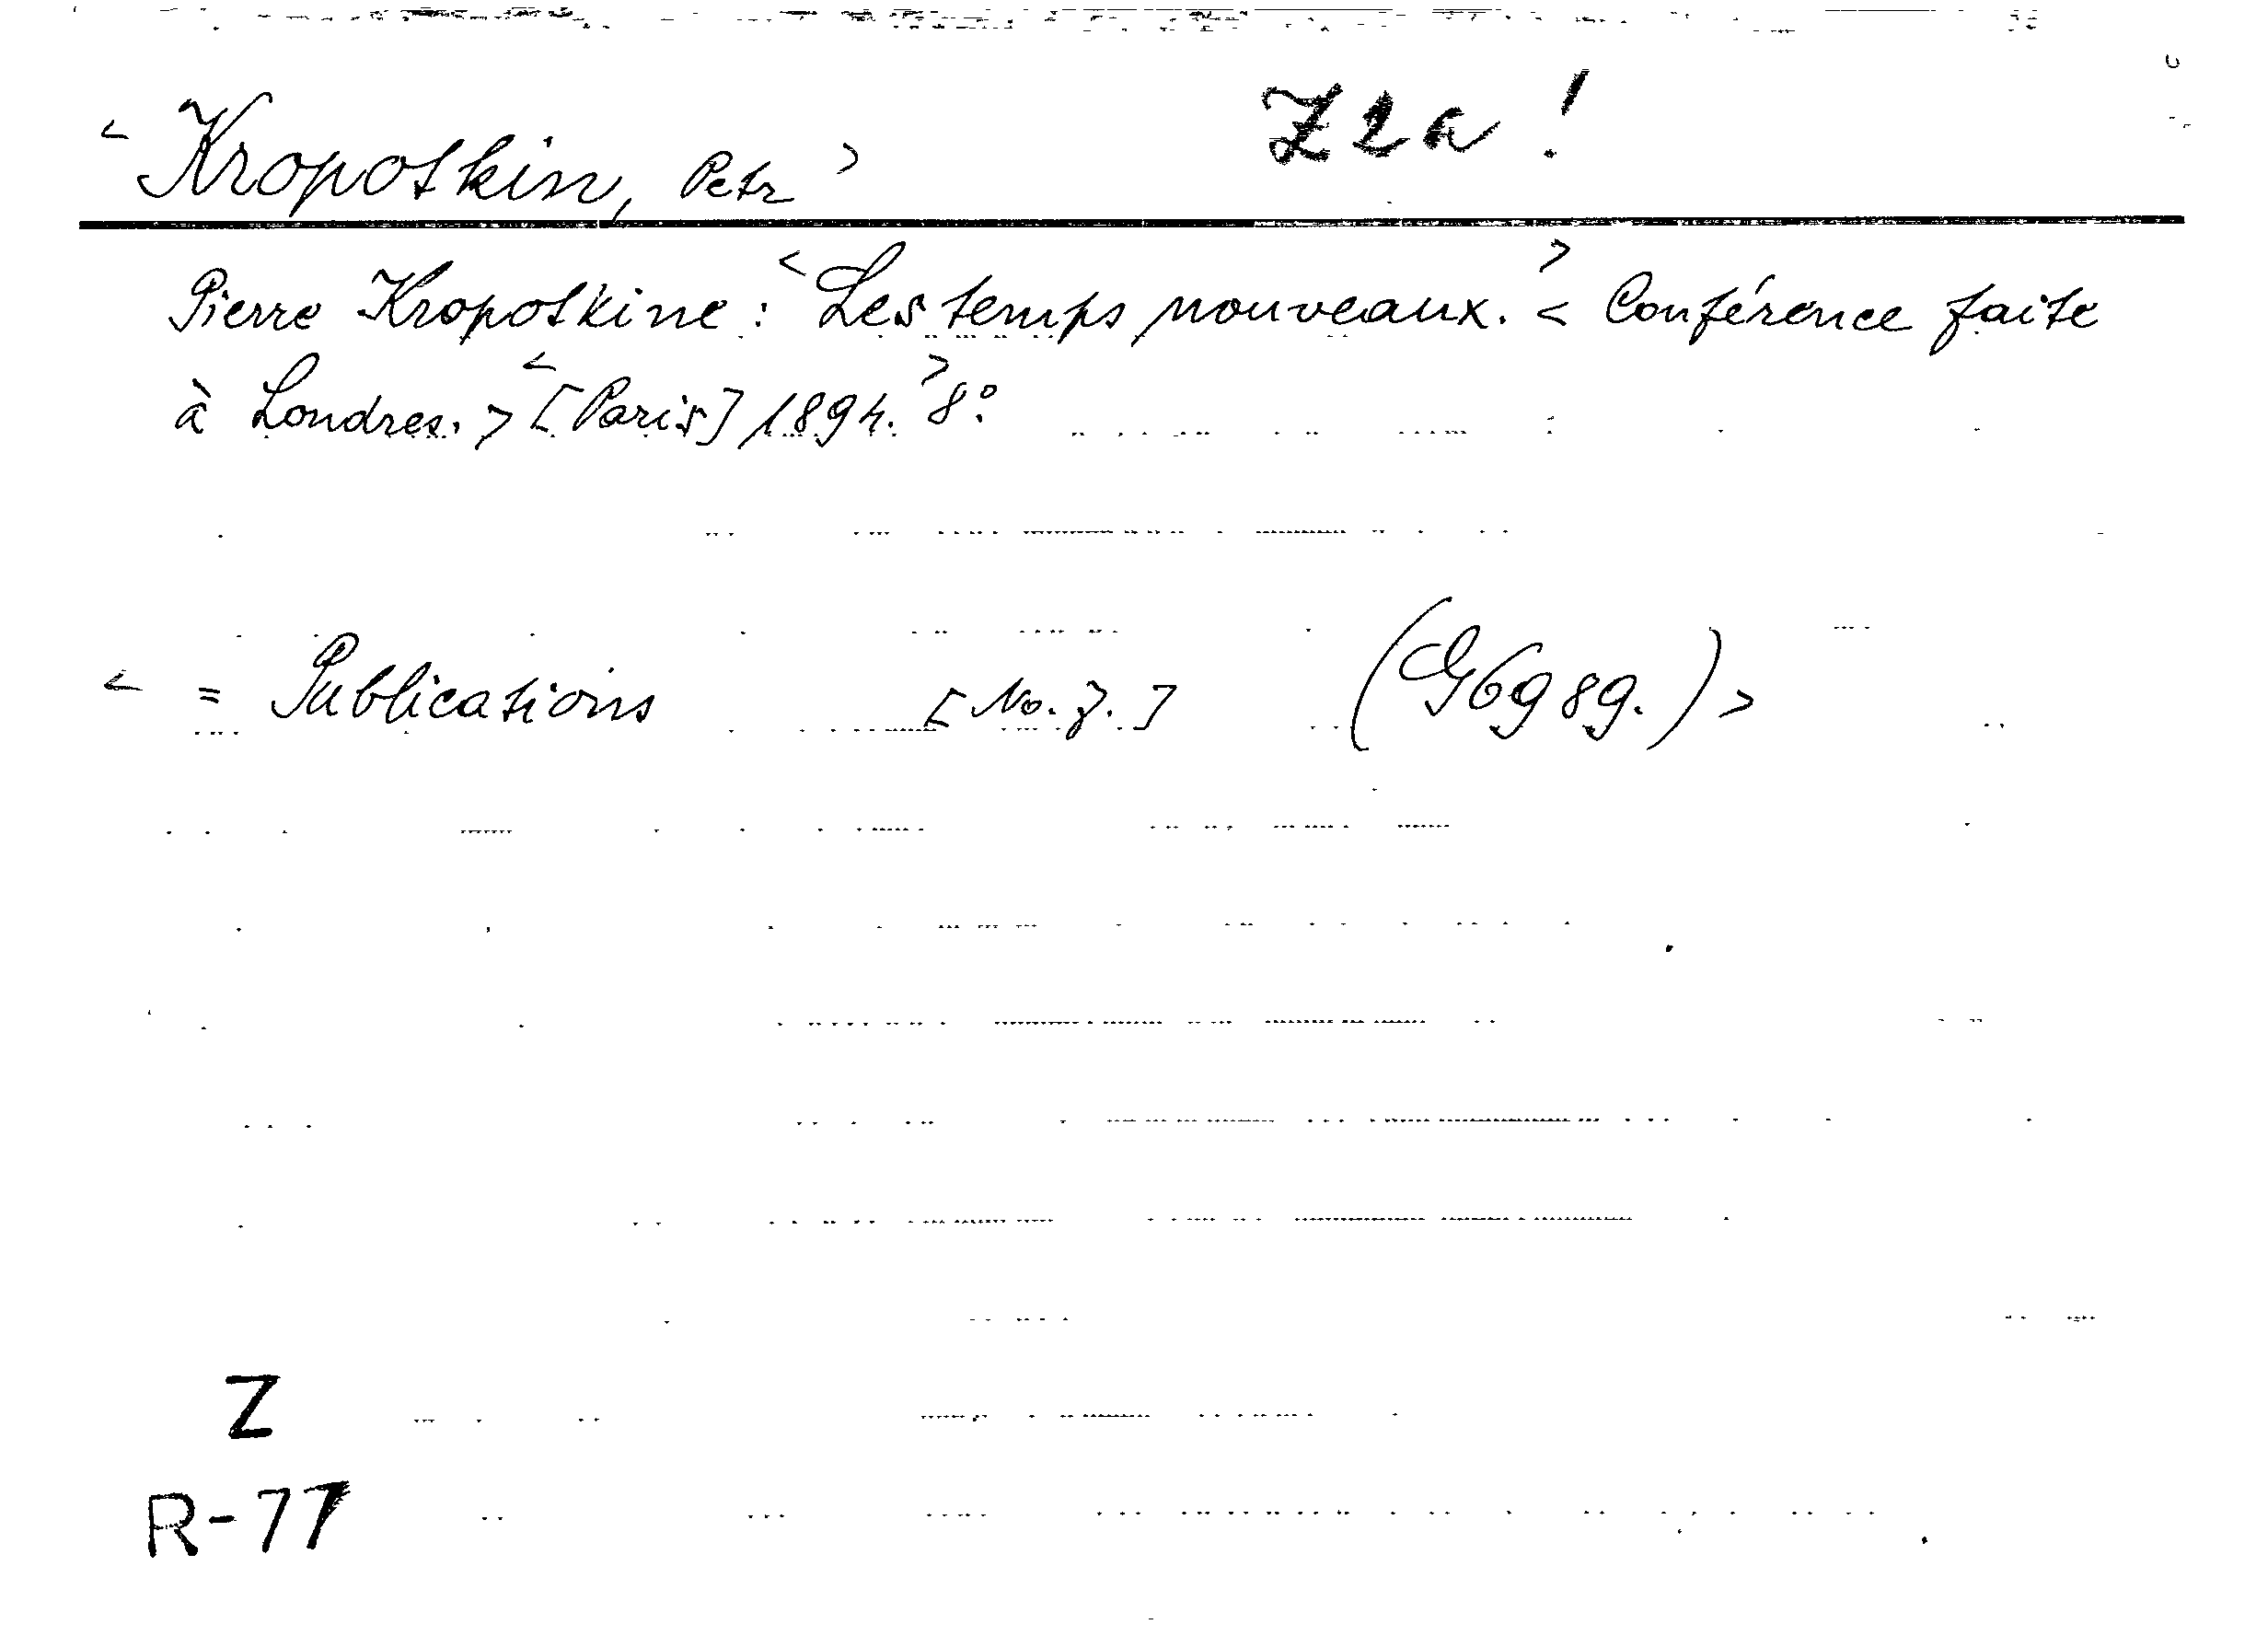 Z2a!
< Kropotkin, Petr >
Pierre Kropotkine: < Les temps nouveaux. > < Conférence faite
à Londres. > < [Paris] 1894. > 8°.
< = Publications [No. 7.] (G6989.) >
Z
R-77